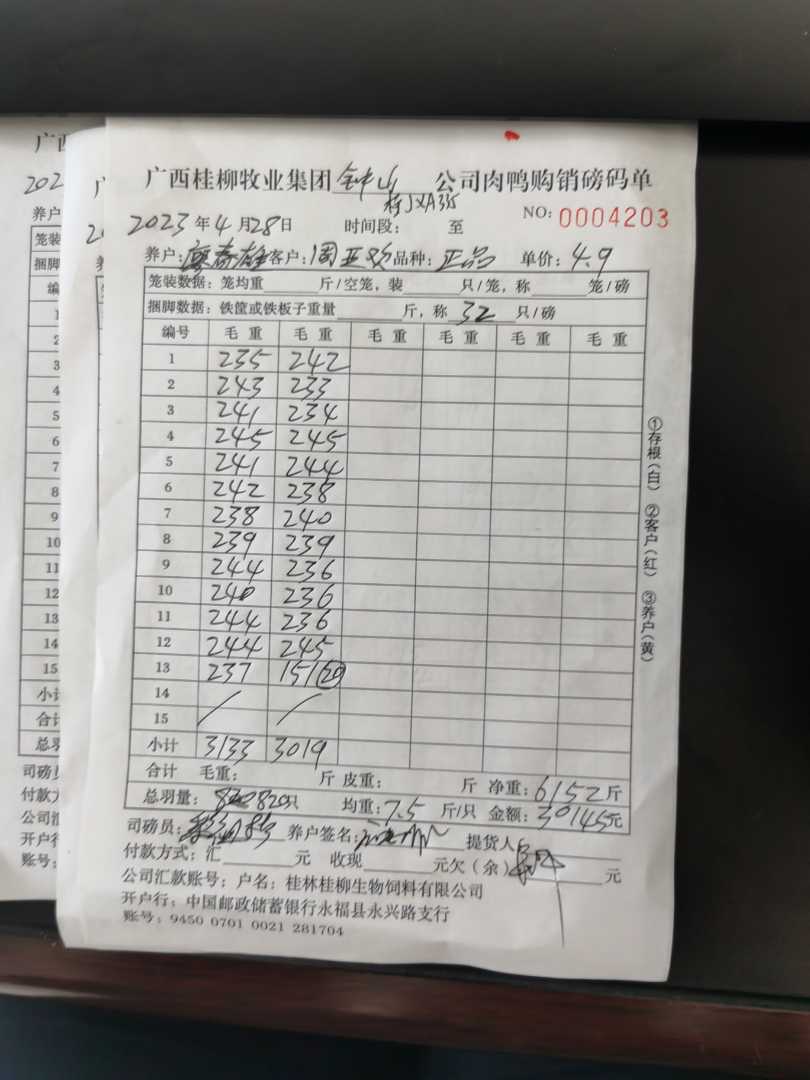 广西桂柳牧业集团 钟山 公司肉鸭购销磅码单
桂JXA335
NO: 0004203
2023年4月28日 时间段: 至
养户:廖春雄 客户:周亚欢 品种:正品 单价:4.9
笼装数据: 笼均重 斤/空笼, 装 只/笼, 称 笼/磅
捆脚数据: 铁筐或铁板子重量 斤, 称 32 只/磅
编号 毛重 毛重 毛重 毛重 毛重 毛重
1 235 242
2 243 233
3 241 234
4 245 245
5 241 244
6 242 238
7 238 240
8 239 239
9 244 236
10 240 236
11 244 236
12 244 245
13 237 151(20)
14 / /
15
小计 3133 3019
合计 毛重: 斤 皮重: 斤 净重:6152斤
总羽量: 820只 均重:7.5 斤/只 金额:30145元
司磅员: 养户签名: 提货人
付款方式: 汇 元 收现 元欠(余) 元
公司汇款账号: 户名: 桂林桂柳生物饲料有限公司
开户行: 中国邮政储蓄银行永福县永兴路支行
账号: 9450 0701 0021 281704
①存根(白) ②客户(红) ③养户(黄)